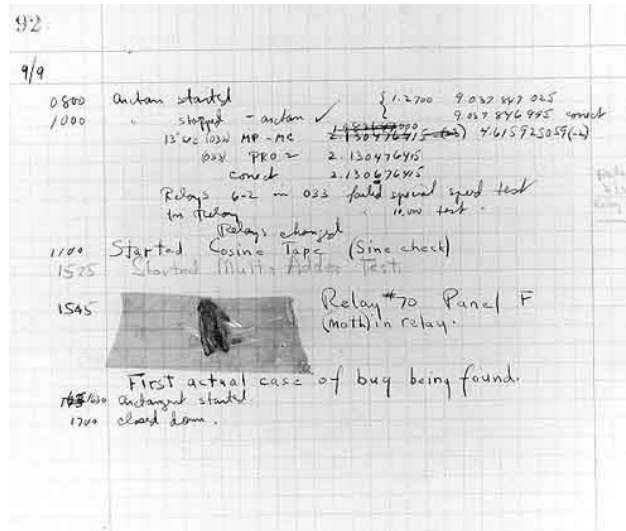 92
9/9
0800 antan started { 1.2700 9.037 847 025
1000 " stopped - antan ✓ 9.037 846 995 correct
13" UC (032) MP-MC 2.130476415 (-3) 4.615925059(-2)
(033) PRO 2 2.130476415
correct 2.130676415
Relays 6-2 in 033 failed special speed test
in relay " 10.000 test.
Relays changed
1100 Started Cosine Tape (Sine check)
1525 Started Mult+Adder Test.
1545 Relay #70 Panel F
(Moth) in relay.
First actual case of bug being found.
1630 antangent started.
1700 closed down.